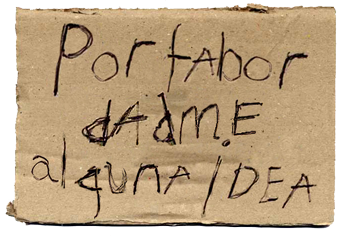 Por fAbor
dAdm.E
algunA IDEA